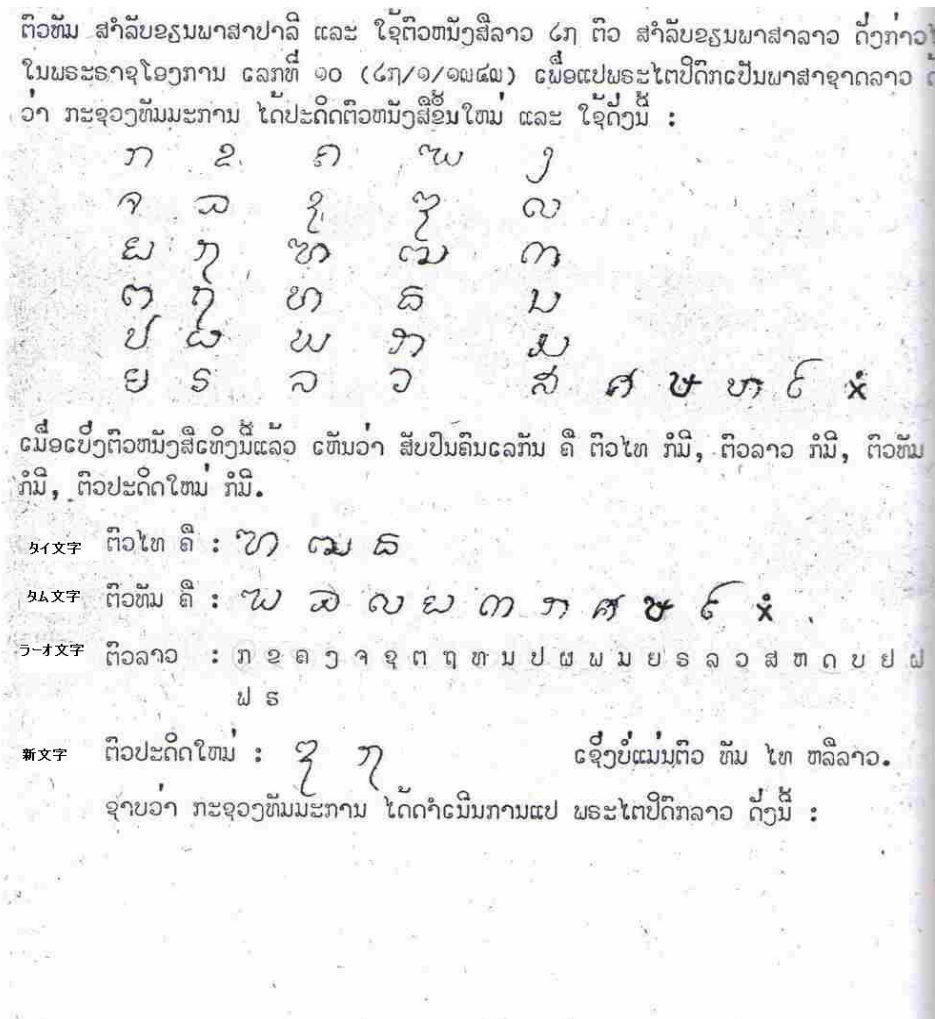 ຕົວທັມ ສຳລັບຂຽນພາສາປາລີ ແລະ ໃຊ້ຕົວຫນັງສືລາວ ໒໗ ຕົວ ສຳລັບຂຽນພາສາລາວ ດັ່ງກ່າວ
ໃນພຣະຣາຊໂອງການ ເລກທີ່ ໑໐ (໒໗/໑/໑໙໔໙) ເພື່ອແປພຣະໄຕປິດົກເປັນພາສາຊາດລາວ
ວ່າ ກະຊວງທັມມະການ ໄດ້ປະດິດຕົວຫນັງສືຂຶ້ນໃຫມ່ ແລະ ໃຊ້ດັ່ງນີ້ :
ກ ຂ ຄ ຆ ງ
ຈ ຉ ຊ ຌ ຎ
ຏ ຐ ຑ ຒ ຓ
ຕ ຖ ທ ຘ ນ
ປ ຜ ພ ຠ ມ
ຍ ຣ ລ ວ ສ ຨ ຩ ຫ
ເມື່ອເບິ່ງຕົວຫນັງສືເທິງນີ້ແລ້ວ ເຫັນວ່າ ສັບປົນຄົນເລກັນ ຄື ຕົວໄທ ກໍມີ, ຕົວລາວ ກໍມີ, ຕົວທັມ
ກໍມີ, ຕົວປະດິດໃຫມ່ ກໍມີ.
タイ文字 ຕົວໄທ ຄື : ຑ ຒ ຘ
タム文字 ຕົວທັມ ຄື : ຆ ຉ ຎ ຏ ຓ ຠ ຨ ຩ
ラーオ文字 ຕົວລາວ : ກ ຂ ຄ ງ ຈ ຊ ຕ ຖ ທ ນ ປ ຜ ພ ມ ຍ ຣ ລ ວ ສ ຫ ດ ບ ຢ ຝ
ຟ ຣ
新文字 ຕົວປະດິດໃຫມ່ : ຌ ຐ ເຊິ່ງບໍ່ແມ່ນຕົວ ທັມ ໄທ ຫລືລາວ.
ຊາບວ່າ ກະຊວງທັມມະການ ໄດ້ດຳເນີນການແປ ພຣະໄຕປິດົກລາວ ດັ່ງນີ້ :